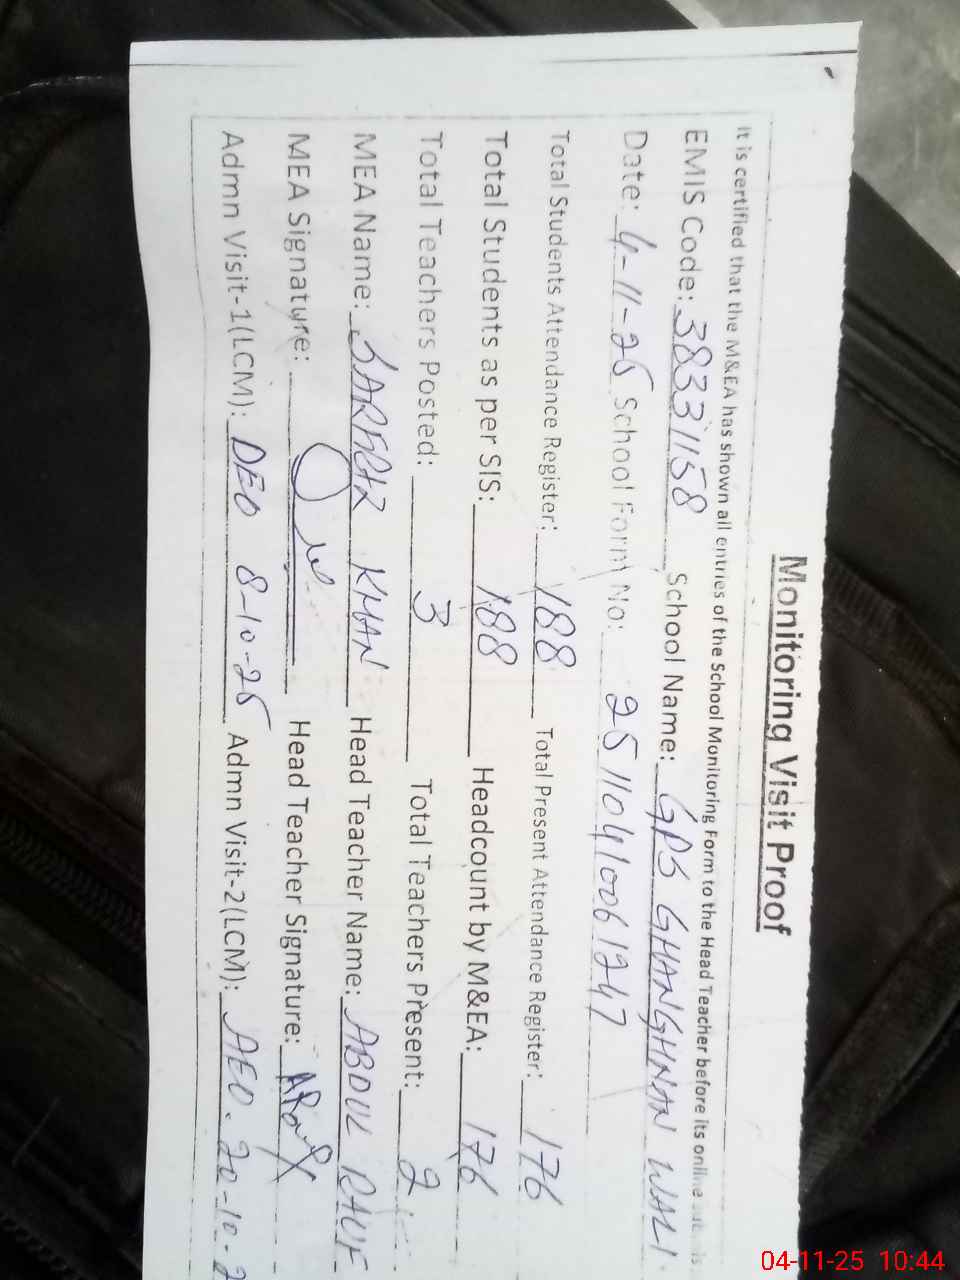 Monitoring Visit Proof
It is certified that the M&EA has shown all entries of the School Monitoring Form to the Head Teacher before its online
EMIS Code: 38331158 School Name: GPS GHANGHNAN WALI
Date: 4-11-25 School Form No: 25110410061247
Total Students Attendance Register: 188 Total Present Attendance Register: 176
Total Students as per SIS: 188 Headcount by M&EA: 176
Total Teachers Posted: 3 Total Teachers Present: 2
MEA Name: SARFRAZ KHAN Head Teacher Name: ABDUL RAUF
MEA Signature: Head Teacher Signature:
Admn Visit-1(LCM): DEO 8-10-25 Admn Visit-2(LCM): AEO. 20-10-2
04-11-25 10:44